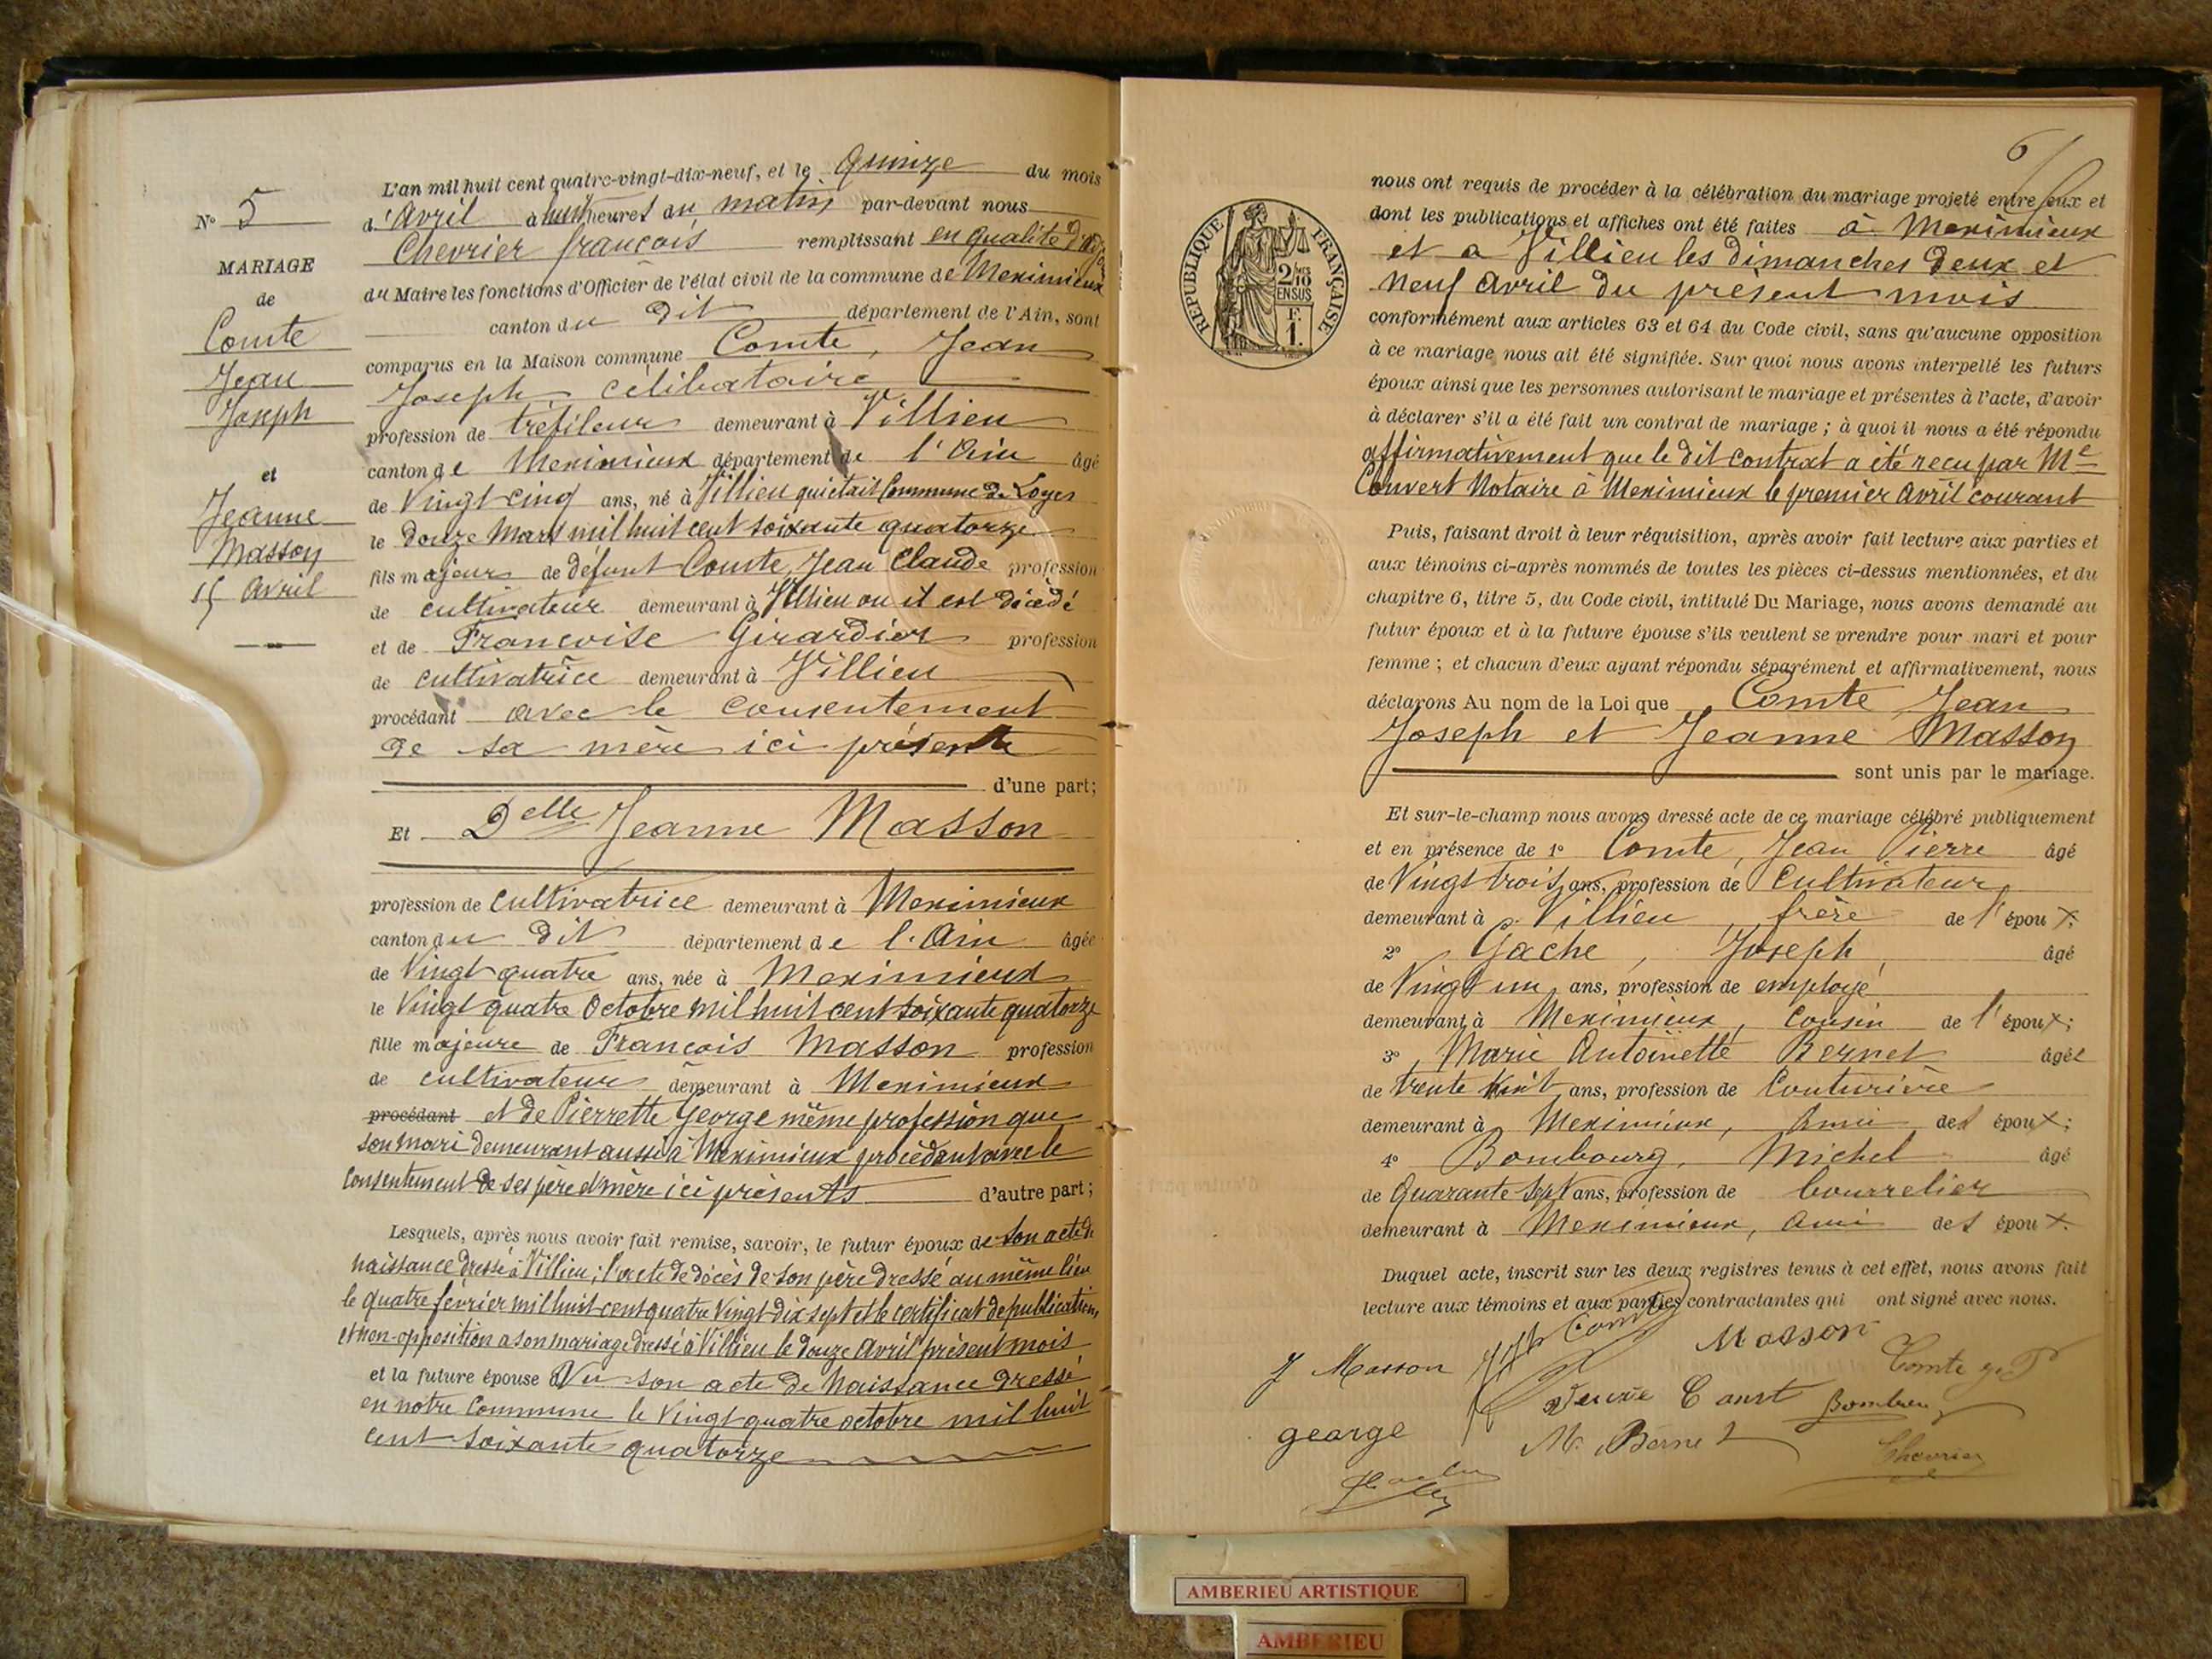 N° 5
MARIAGE
de
Comte
Jean
Joseph
et
Jeanne
Masson
15 Avril
L'an mil huit cent quatre-vingt-dix-neuf, et le quinze du mois
d'Avril à huit heures du matin par-devant nous
Chevrier françois remplissant en qualité d'
du Maire les fonctions d'Officier de l'état civil de la commune de Meximieux
canton du dit département de l'Ain, sont
comparus en la Maison commune Comte, Jean
Joseph, célibataire
profession de tréfileur demeurant à Villieu
canton de Meximieux département de l'Ain âgé
de Vingt cinq ans, né à Villieu qui était Commune de Loyes
le douze Mars mil huit cent soixante quatorze
fils majeur de défunt Comte, Jean Claude profession
de cultivateur demeurant à Villieu ou il est décédé
et de Francoise Girardier profession
de cultivatrice demeurant à Villieu
procédant avec le consentement
de sa mère ici présente
d'une part;
Et Delle Jeanne Masson
profession de cultivatrice demeurant à Meximieux
canton du dit département de l'Ain âgée
de Vingt quatre ans, née à Meximieux
le Vingt quatre Octobre mil huit cent soixante quatorze
fille majeure de Francois Masson profession
de cultivateur demeurant à Meximieux
procédant et de Pierrette George même profession que
son mari demeurant aussi à Meximieux procédant avec le
consentement de ses père et mère ici présents d'autre part;
Lesquels, après nous avoir fait remise, savoir, le futur époux de son acte de
naissance dressé à Villieu; l'acte de décès de son père dressé au même lieu
le quatre février mil huit cent quatre Vingt dix sept et le certificat de publications
et non-opposition a son mariage dressé à Villieu le douze Avril présent mois
et la future épouse Vu son acte de Naissance dressé
en notre Commune le Vingt quatre octobre mil huit
cent soixante quatorze
6
RÉPUBLIQUE FRANÇAISE
2/10
EN SUS
F.
1.
nous ont requis de procéder à la célébration du mariage projeté entre eux et
dont les publications et affiches ont été faites à Meximieux
et a Villieu les dimanches deux et
neuf Avril du présent mois
conformément aux articles 63 et 64 du Code civil, sans qu'aucune opposition
à ce mariage nous ait été signifiée. Sur quoi nous avons interpellé les futurs
époux ainsi que les personnes autorisant le mariage et présentes à l'acte, d'avoir
à déclarer s'il a été fait un contrat de mariage; à quoi il nous a été répondu
affirmativement que le dit contrat a été recu par Me
Convert Notaire à Meximieux le premier Avril courant
Puis, faisant droit à leur réquisition, après avoir fait lecture aux parties et
aux témoins ci-après nommés de toutes les pièces ci-dessus mentionnées, et du
chapitre 6, titre 5, du Code civil, intitulé Du Mariage, nous avons demandé au
futur époux et à la future épouse s'ils veulent se prendre pour mari et pour
femme; et chacun d'eux ayant répondu séparément et affirmativement, nous
déclarons Au nom de la Loi que Comte Jean
Joseph et Jeanne Masson
sont unis par le mariage.
Et sur-le-champ nous avons dressé acte de ce mariage célébré publiquement
et en présence de 1° Comte, Jean Pierre âgé
de Vingt trois ans, profession de Cultivateur
demeurant à Villieu, frère de l'époux;
2° Gache, Joseph, âgé
de Vingt un ans, profession de employé
demeurant à Meximieux, Cousin de l'époux;
3° Marie Antoinette Bernet âgée
de trente huit ans, profession de Couturière
demeurant à Meximieux, Amie des époux;
4° Bombourg, Michel âgé
de Quarante sept ans, profession de bourrelier
demeurant à Meximieux, ami des époux.
Duquel acte, inscrit sur les deux registres tenus à cet effet, nous avons fait
lecture aux témoins et aux parties contractantes qui ont signé avec nous.
J Masson Jph Comte Masson
Comte J P
Veuve Comt
george M. Bernet Chevrier
AMBERIEU ARTISTIQUE
AMBERIEU